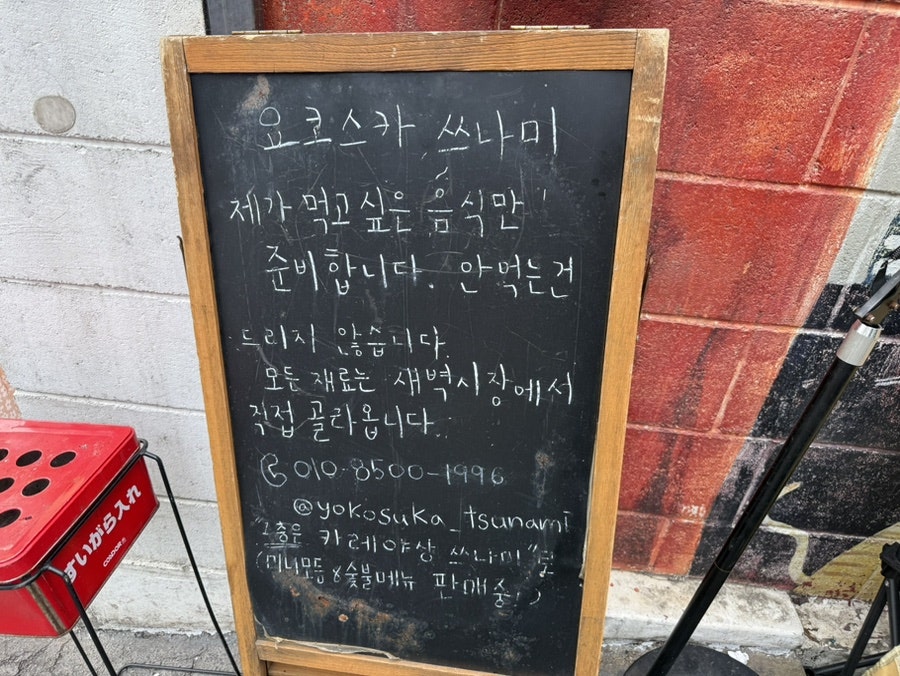 요코스카 쓰나미
제가 먹고싶은 음식만
준비합니다. 안먹는건
드리지 않습니다.
모든 재료는 새벽시장에서
직접 골라옵니다.
010-8500-1996
@yokosuka_tsunami
층은 카레야상 쓰나미"
(미니모듬 & 숯불메뉴 판매중!)
すいがら入れ
CONDOR